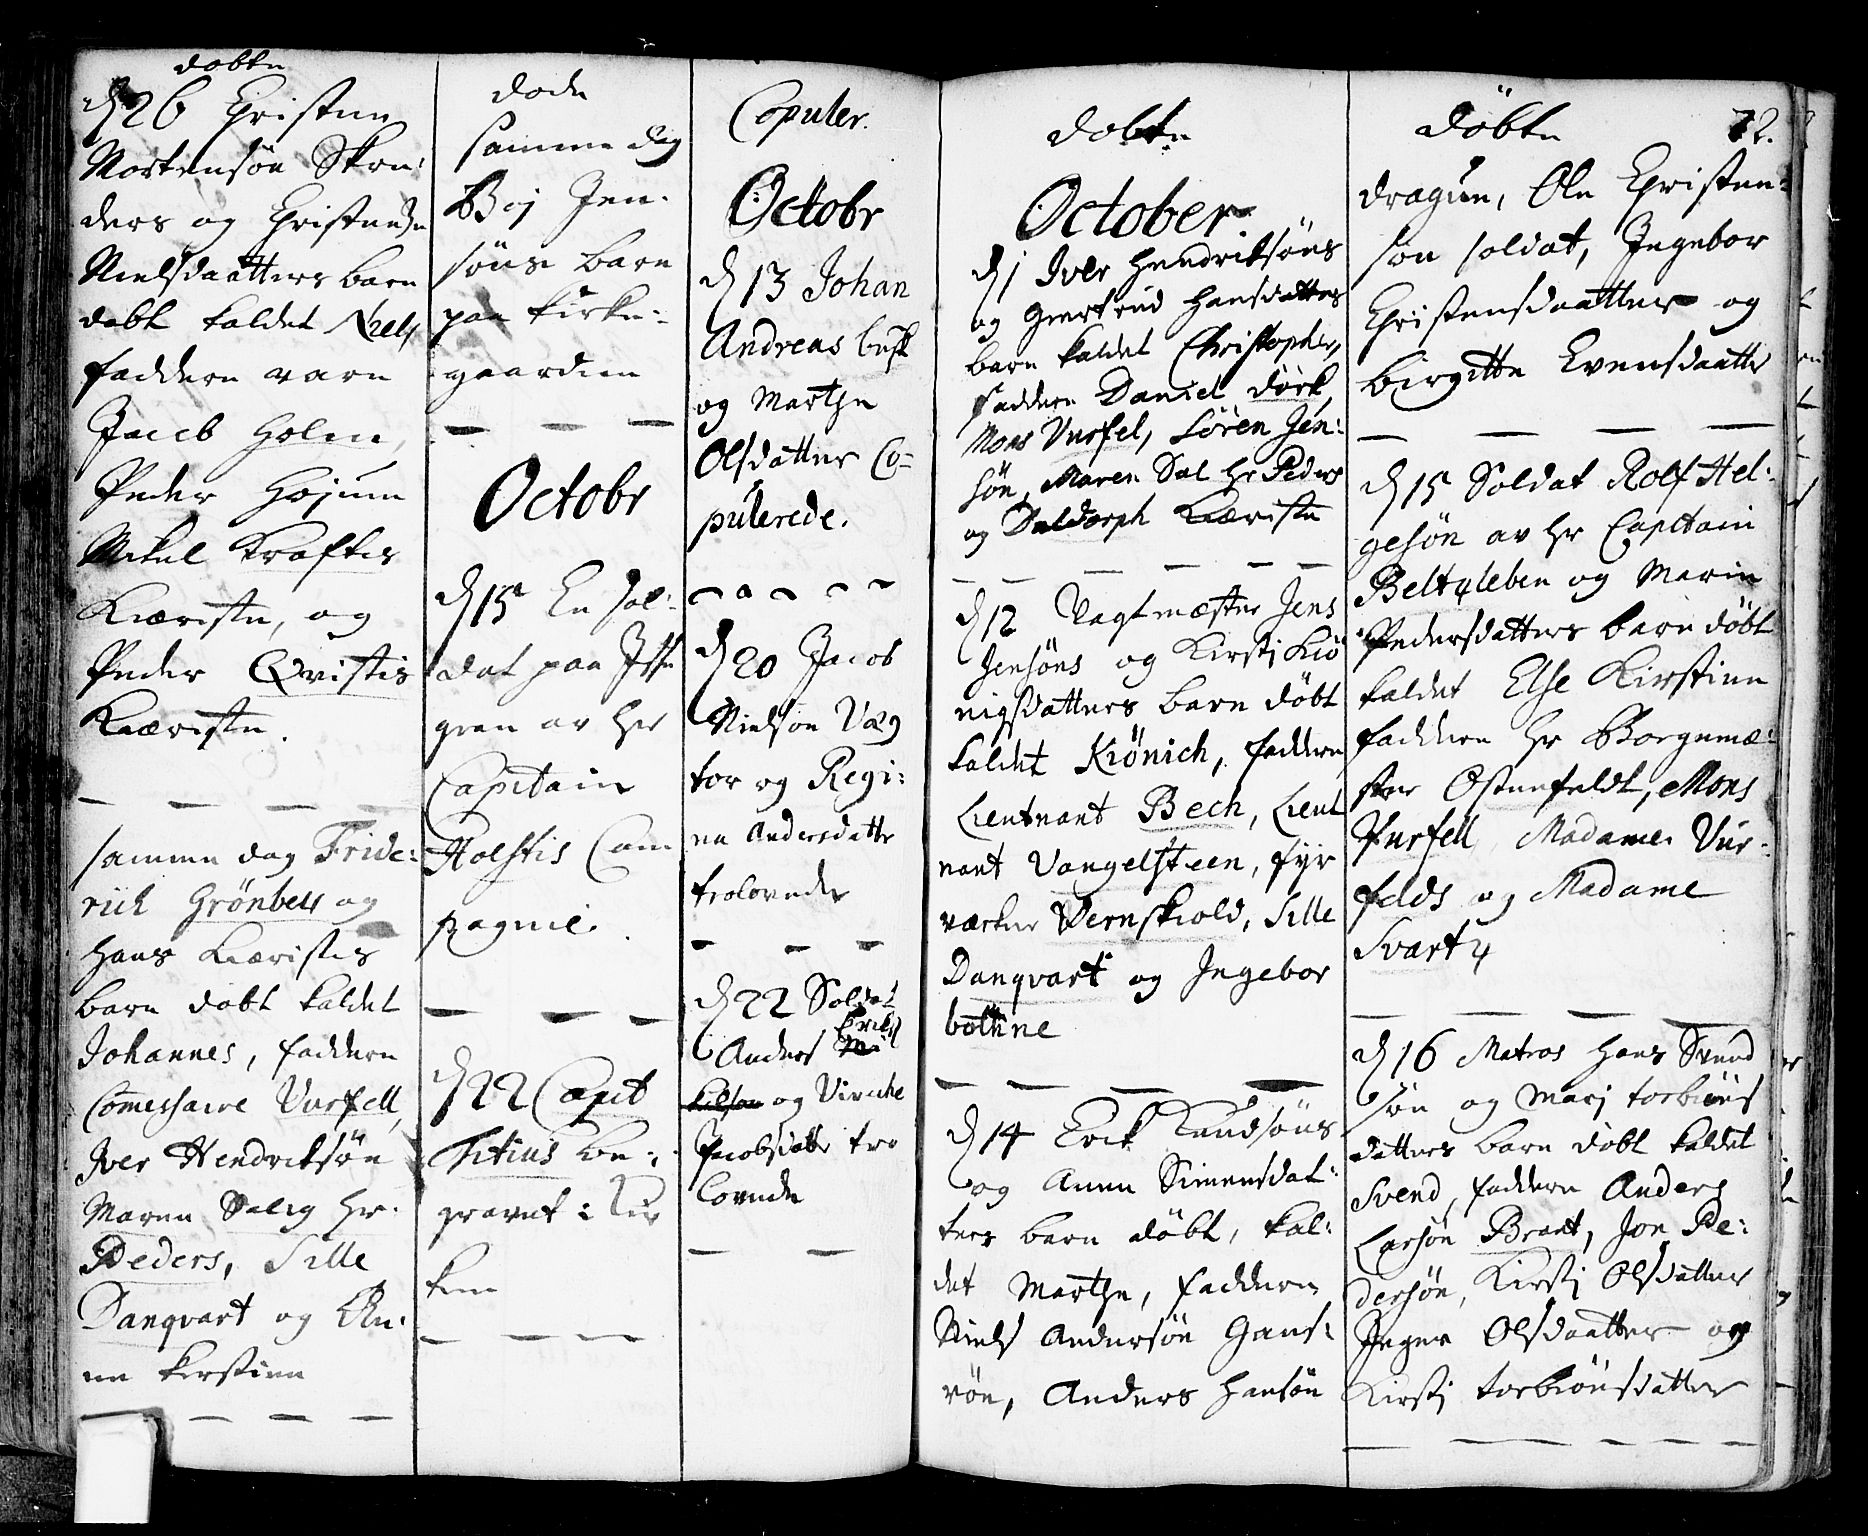 døbte
d 26 Christen
Mortensøn Skre:
ders og Christense
Nielsdaatters barn
døbt kaldet Niels
faddere vare
Jacob Holm,
Peder Hojum
Mikel Krafts
Kiæriste, og
Peder Qvistis
Kiæriste.
samme dag Fride:
rich Grønbek og
hans Kiæristes
barn døbt kaldet
Johannes, faddere
Commessaire Vurfell,
Iver Hendriksøn
Maren Salig Hr.
Peders, Sille
Danqvart og An:
ne Kirstine
døde
samme dag
Boj Jen:
søns barn
paa Kirke:
gaarden
Octobr
d 15 En Sol:
dat paa
gren av Her
Capitain
Holstis Com
pagnie.
d 22 Capit
Titius be:
gravet i Kir
ken
Copuler.
Octobr
d 13 Johan
Andreas busk
og Marthe
Olsdatter Co=
pulerede.
d 20 Jacob
Nielsøn Væg
tor og Regi:
ne Andersdatter
trolovede
d 22 Soldat
Anders Erichs
og Viviche
Jacobsdatter tro
lovede
døbte
October
d 1 Iver Hendriksøns
og Giertrud Hansdatters
barn kaldet Christopher,
faddere Daniel Dørk,
Mons Vurfel, Søren Jen:
søn, Maren Sal Hr Peders
og Daldorph Kiæriste
d 12 Vagtmæster Jens
Jensøns og Kirstj Kiø
nigsdatters barn døbt
kaldet Kiønich, faddere
Lieutnant Bech, Lieut
nant Vangelsteen, fyr
værker Vernskiold, Sille
Danqvart og Ingebor
bothne
d 14 Erik Knudsøns
og Anne Simensdat:
ters barn døbt, kal:
det Marthe, faddere
Niels Andersøn Gans:
røn, Anders Hansøn
døbte 72.
dragun, Ole Christen:
søn soldat, Ingebor
Christensdaatter og
Birgitte Evensdaatter
d 15 Soldat Rolf Hel:
gesøn av Hr Capitain
Beltzleben og Marin
Pedersdatters barn døbt
kaldet Else Kirstine
faddere Hr Borgemæ:
ster Ostenfeldt, Mons
Vurfell, Madame Vur:
felds og Madame
Svartz
d 16 Matros Hans Svend
søn og Marj torbiøns
datters barn døbt kaldet
Svend, faddere Anders
Larsøn Brant, Jon Pe:
dersøn, Kirstj Olsdatter
Inger Olsdaatter og
Kirstj torbiønsdatter